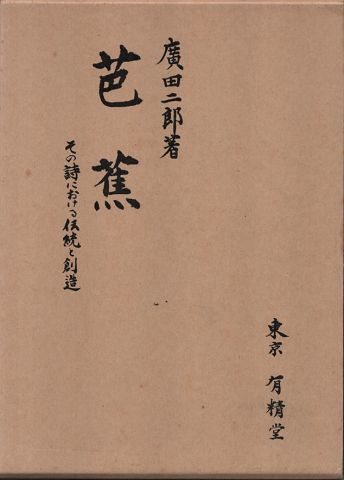 廣田二郎著
芭蕉
その詩における伝統と創造
東京 有精堂